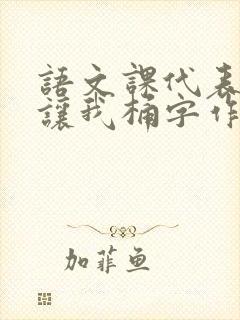 語文課代表
讓我桶字作
加菲鱼